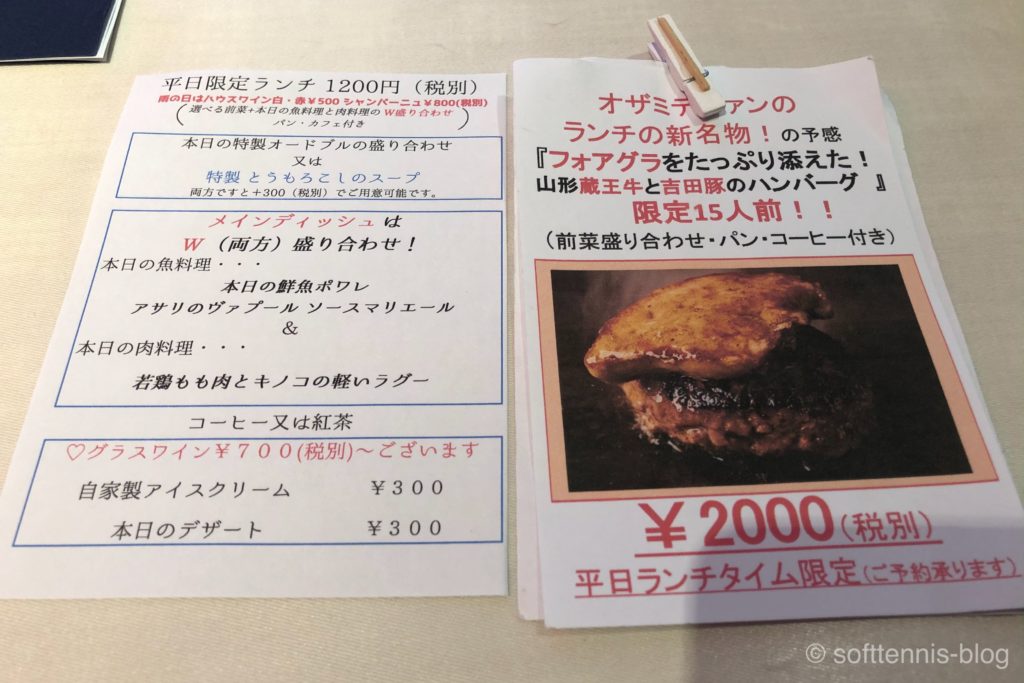 平日限定ランチ 1200円（税別）
雨の日はハウスワイン白・赤￥500 シャンパーニュ￥800(税別)
（選べる前菜+本日の魚料理と肉料理の W盛り合わせ
パン・カフェ付き）
本日の特製オードブルの盛り合わせ
又は
特製 とうもろこしのスープ
両方ですと＋300（税別）でご用意可能です。
メインディッシュは
W（両方）盛り合わせ！
本日の魚料理・・・
本日の鮮魚ポワレ
アサリのヴァプール ソースマリエール
＆
本日の肉料理・・・
若鶏もも肉とキノコの軽いラグー
コーヒー又は紅茶
♡グラスワイン￥７００(税別)～ございます
自家製アイスクリーム ￥３００
本日のデザート ￥３００
オザミデ ァンの
ランチの新名物！の予感
『フォアグラをたっぷり添えた！
山形蔵王牛と吉田豚のハンバーグ 』
限定15人前！！
（前菜盛り合わせ・パン・コーヒー付き）
￥2000（税別）
平日ランチタイム限定（ご予約承ります）
© softtennis-blog